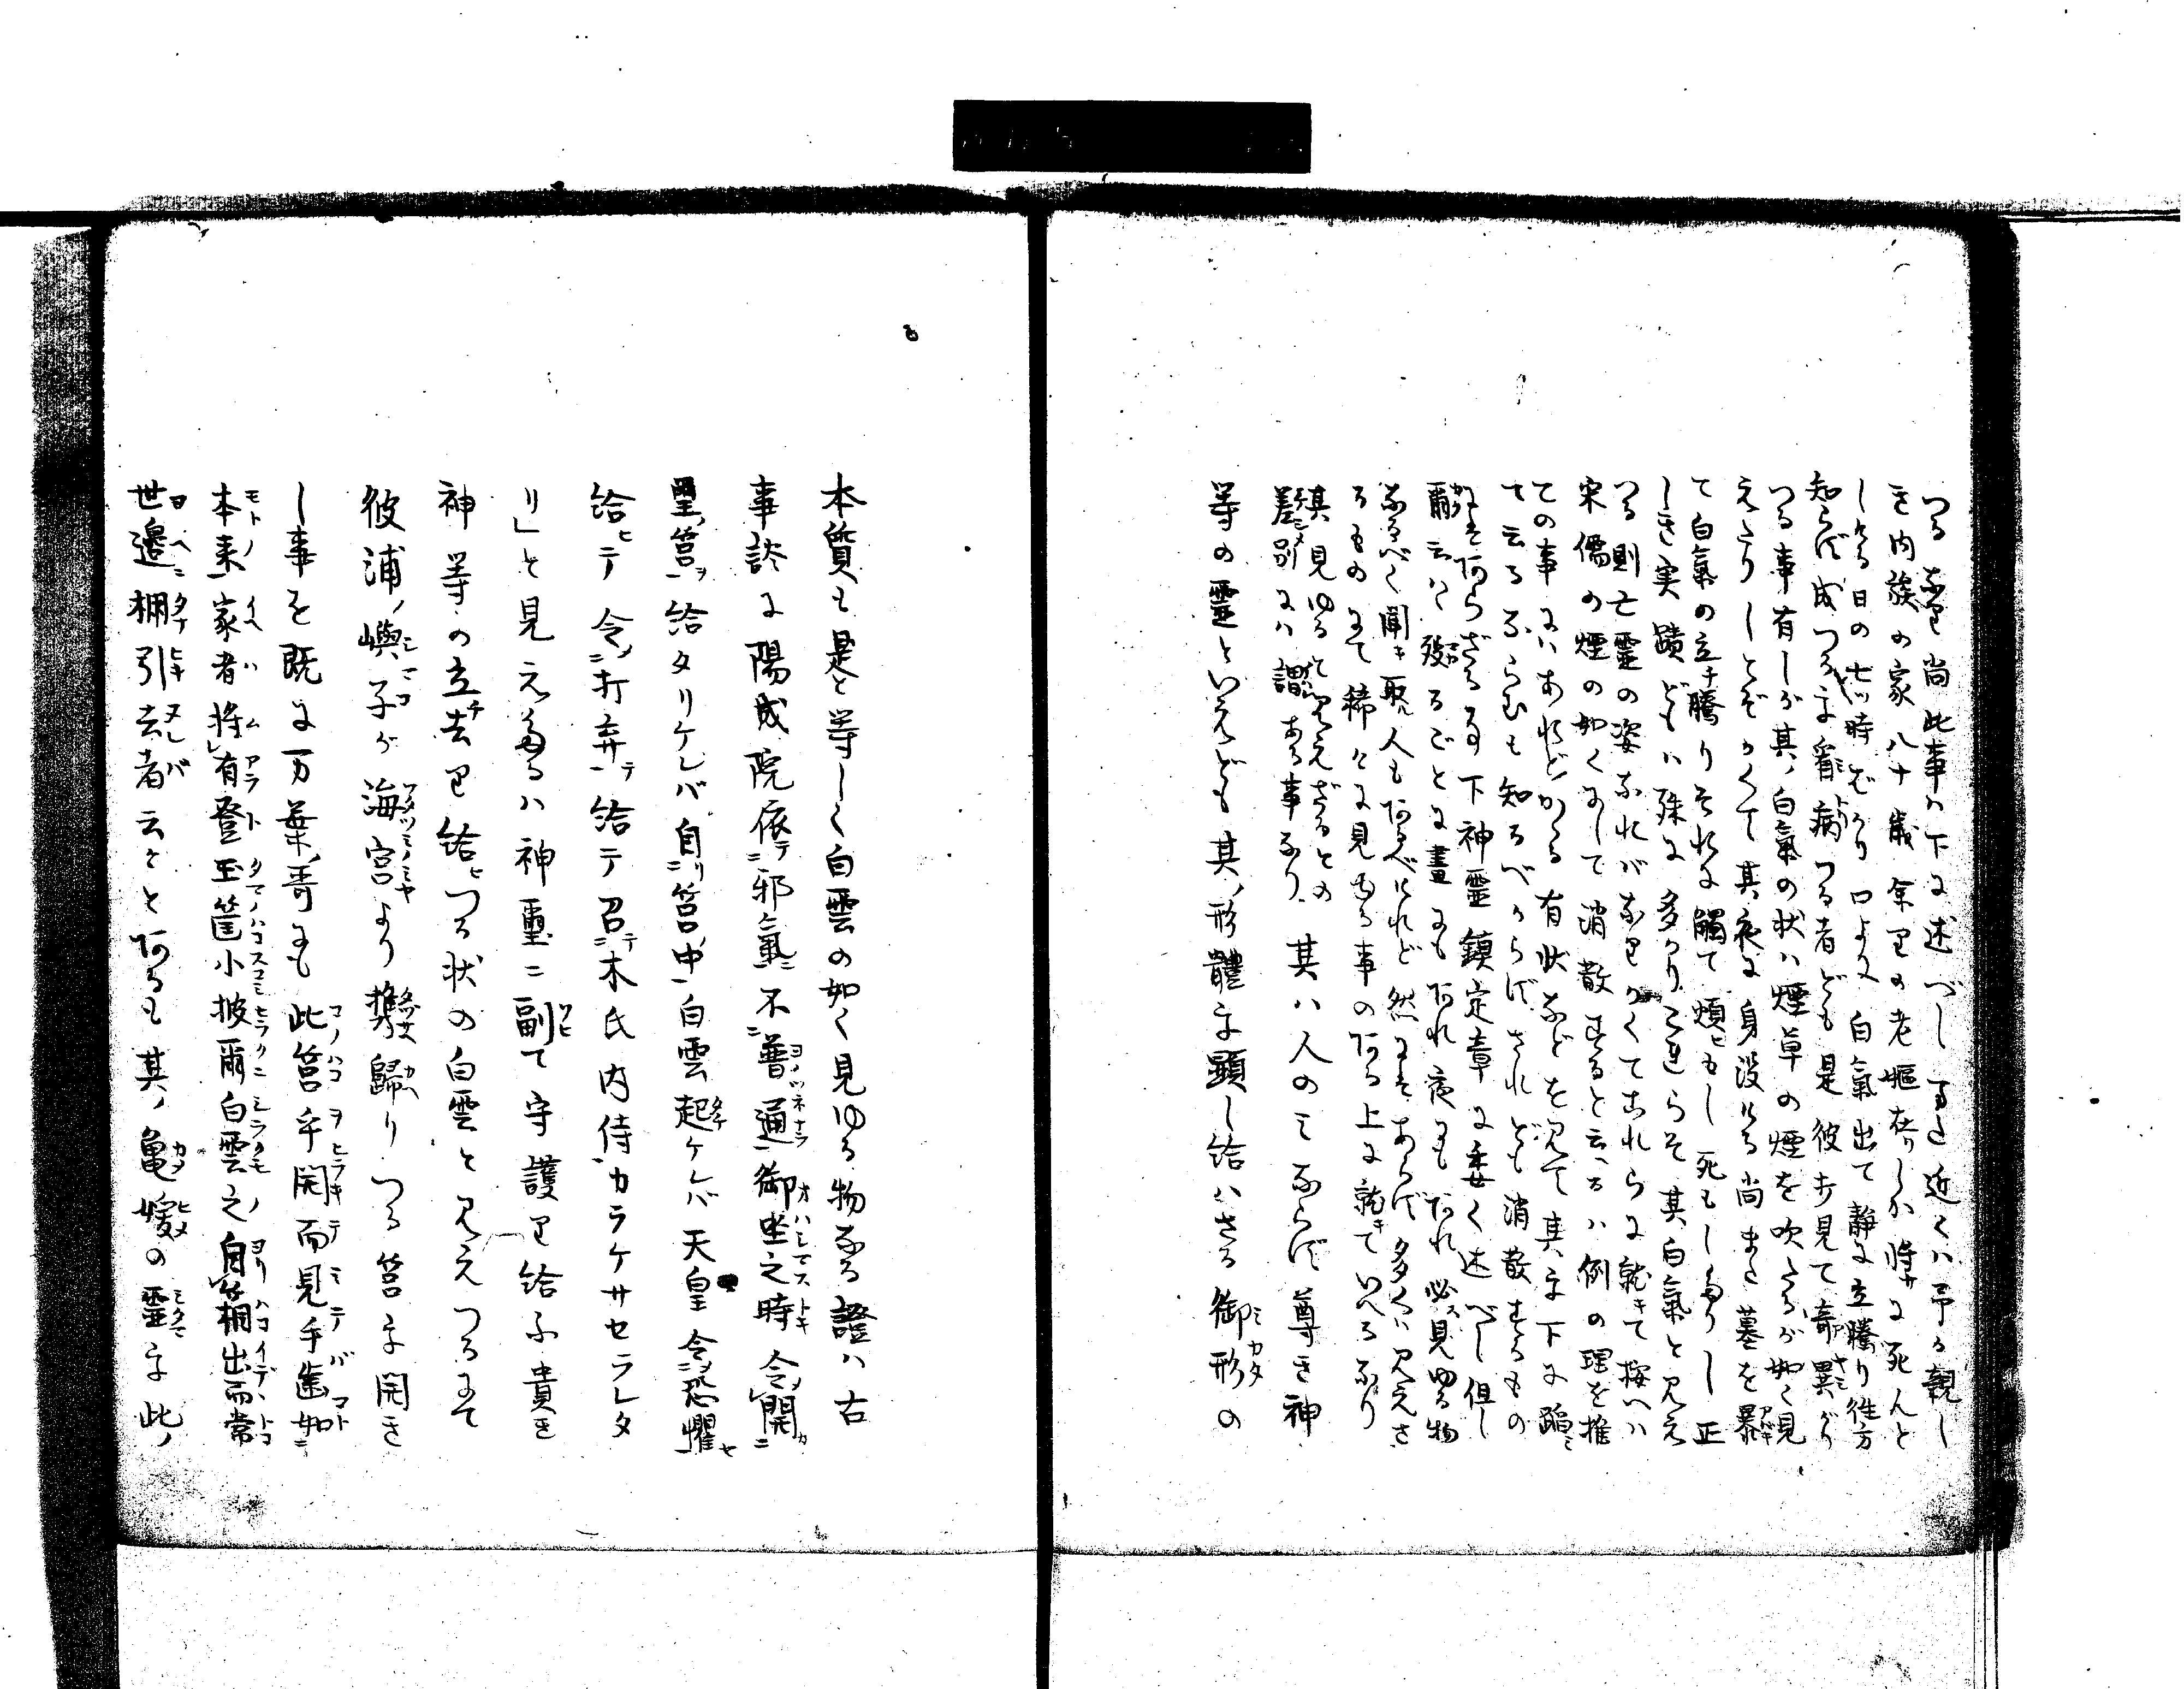 つる なり尚此事ハ下に述べし また近くハ予る親し
き内族の家八十歳余りの老嫗在りしが将に死んと
しける日の七ツ時ばかり口より白氣出て静に立騰り徃方
知らず成つるを看病つる者ども是彼ぉ見て奇異がり
つる事有しが其ノ白氣の状ハ煙草の煙を吹たるが如く見
えたりしとぞかくて其夜に身没ける尚また墓を暴
て白氣の立チ騰りそれに觸て煩ヒもし死もしたりし正
しき実蹟どもハ殊に多かり これらそ其白氣と見え
つる則亡霊の姿なれバなりかくてこれらに就きて按へバ
宋儒の煙の如くにして消散すると云るハ例の理を推
ての事にハあれどかかる有状などを見て其を下に蹈ミ
て云るならむも知るべからずされども消散するもの
にそあらざる事下神霊鎮定章に委く述べし但し
爾云バ殁るごとに晝にもあれ夜にもあれ必ズ見ゆる物
なるべく聞キ取ル人もあるべけれど然にそあらず多くハ見えざ
るものにて稀々に見ゆる事のある上に就きていへるなり
其見ゆると見えざるとの
差別にハ謂ある事なり 其ハ人のミならず尊き神
等の霊といへども其ノ形體を顕し給ハざる御形の
本質も是と等しく白雲の如く見ゆる物なる證ハ古
事談に陽成院依テ二邪氣ニ一不二普通一御坐之時令レ開二
璽ノ筥ヲ一給タリケレバ自リ二筥ノ中一白雲起ケレバ天皇令二恐懼一セ
給ヒテ令二打弃一テ給テ召二テ木氏ノ内侍一カラケサセラレタ
リ」と見え多るハ神璽ニ副て守護り給ふ貴き
神等の立チ去り給ヒつる状の白雲と見えつるにて
彼浦ノ嶼子が海宮より携歸りつる筥を開き
し事を既に万葉ノ哥にも此筥乎開而見手齒如
本来一家者将レ有登玉筐小披爾白雲之自レ箱出而常
世邊棚引去者云々とあるも其ノ亀媛の霊を此ノ